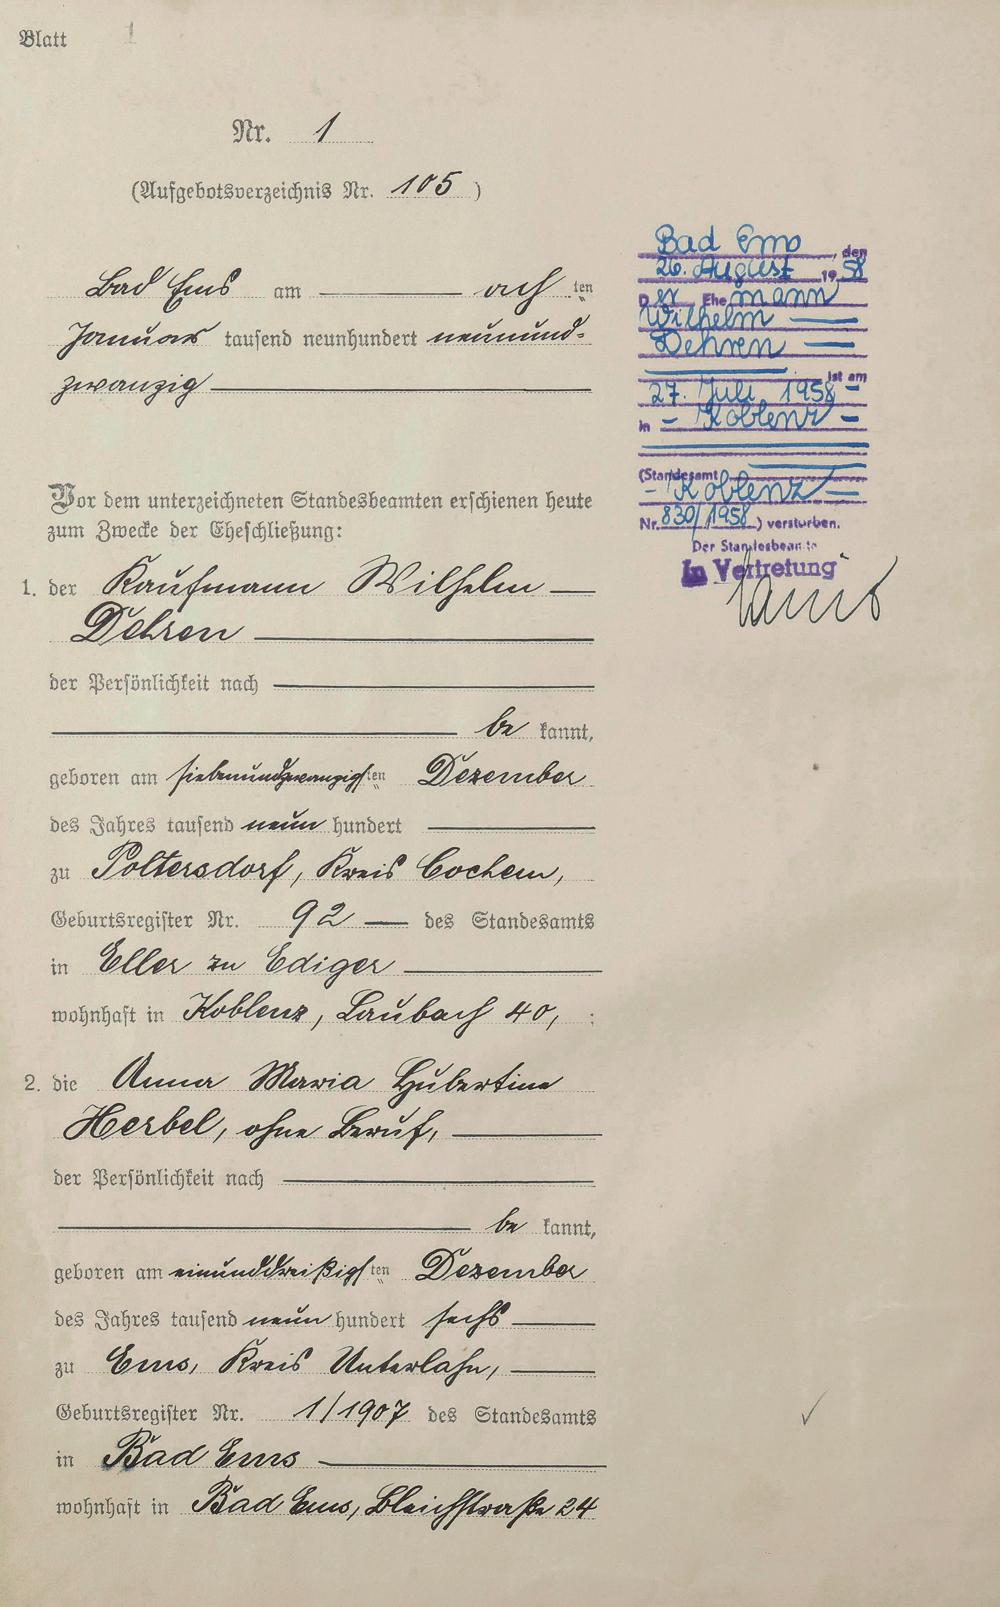 Blatt 1
Nr. 1
(Aufgebotsverzeichnis Nr. 105)
Bad Ems am ach ten
Januar tausend neunhundert neunund-
zwanzig
Vor dem unterzeichneten Standesbeamten erschienen heute
zum Zwecke der Eheschließung:
1. der Kaufmann Wilhelm
Dehren
der Persönlichkeit nach
be kannt,
geboren am siebenundzwanzigsten Dezember
des Jahres tausend neun hundert
zu Poltersdorf, Kreis Cochem,
Geburtsregister Nr. 92 des Standesamts
in Eller zu Ediger
wohnhaft in Koblenz, Laubach 40, ;
2. die Anna Maria Hubertine
Herbel, ohne Beruf,
der Persönlichkeit nach
be kannt,
geboren am einunddreißigsten Dezember
des Jahres tausend neun hundert sechs
zu Ems, Kreis Unterlahn,
Geburtsregister Nr. 1/1907 des Standesamts
in Bad Ems
wohnhaft in Bad Ems, Bleichstraße 24
Bad Ems, den
26. August 1958
Der Ehemann
Wilhelm
Dehren
ist am
27. Juli 1958
in Koblenz
(Standesamt
Koblenz
Nr. 830/1958) verstorben.
Der Standesbeamte
In Vertretung